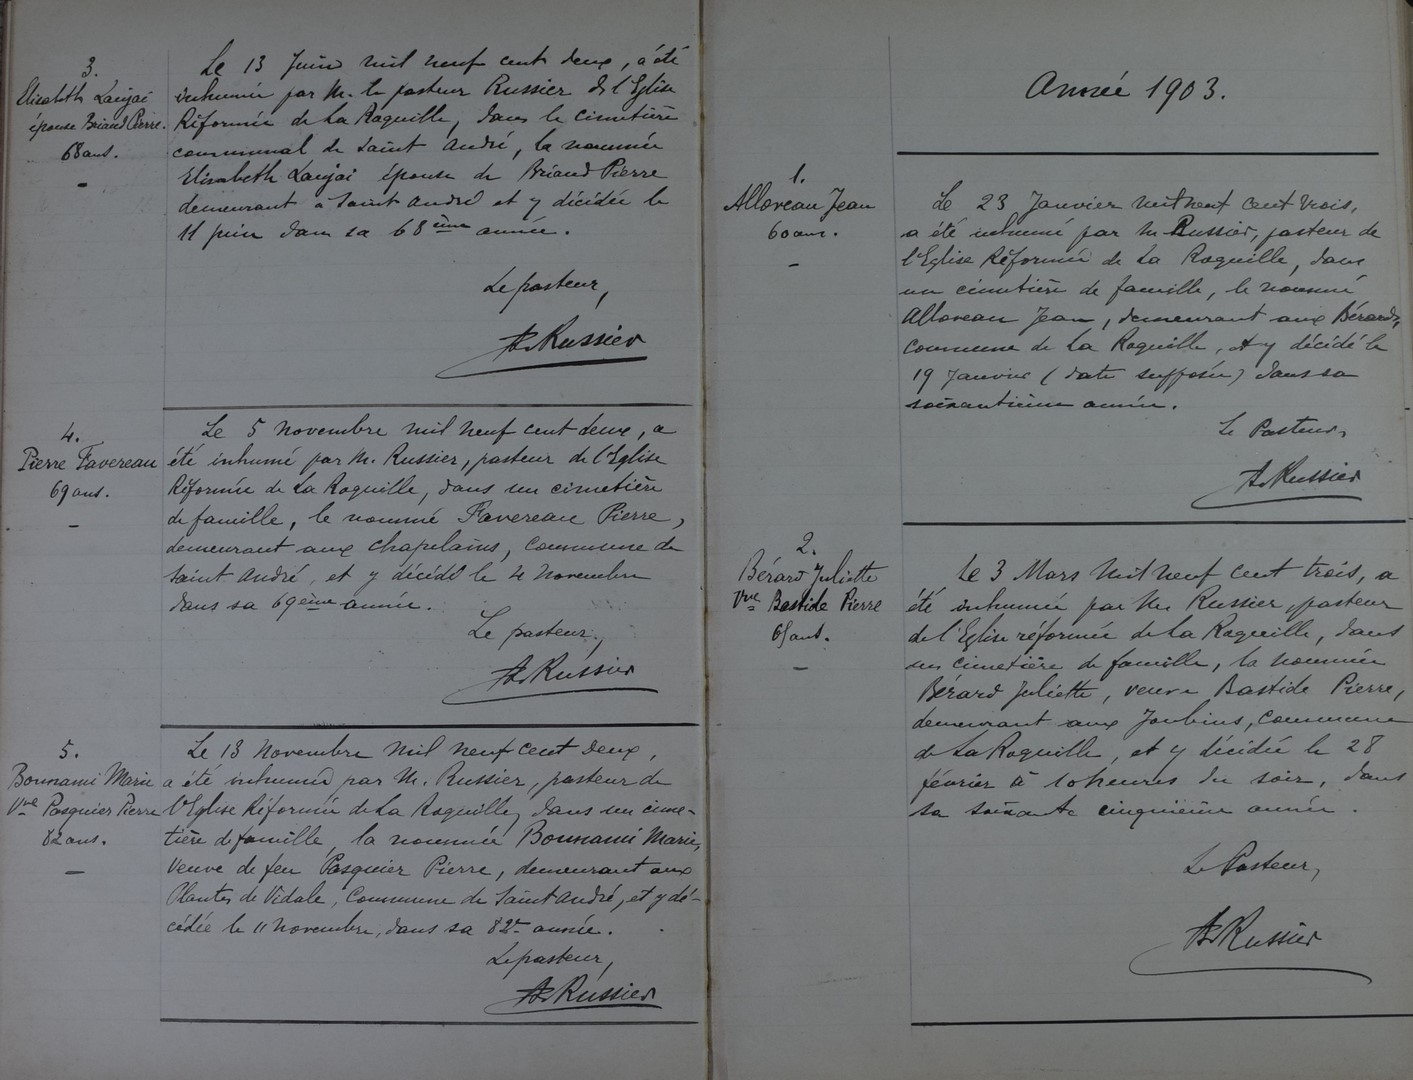 3.
Elisabeth Laujai
épouse Briand Pierre.
68 ans.
Le 13 Juin mil neuf cent deux, a été
inhumée par M. le pasteur Russier de l'Eglise
Réformée de La Roquille, dans le cimetière
communal de Saint André, la nommée
Elisabeth Laujai épouse de Briand Pierre
demeurant à Saint André et y décédée le
11 juin dans sa 68ème année.
Le pasteur,
A. Russier
4.
Pierre Favereau
69 ans.
Le 5 Novembre mil neuf cent deux, a
été inhumé par M. Russier, pasteur de l'Eglise
Réformée de La Roquille, dans un cimetière
de famille, le nommé Favereau Pierre,
demeurant aux Chapelains, commune de
Saint André, et y décédé le 4 Novembre
dans sa 69ème année.
Le pasteur,
A. Russier
5.
Bonnami Marie
Vve Pasquier Pierre
82 ans.
Le 13 Novembre mil neuf cent deux,
a été inhumée par M. Russier, pasteur de
l'Eglise Réformée de La Roquille, dans un cime-
tière de famille, la nommée Bonnami Marie,
veuve de feu Pasquier Pierre, demeurant aux
Plantes de Vidale, Commune de Saint André, et y dé-
cédée le 11 Novembre, dans sa 82e année.
Le pasteur,
A. Russier
Année 1903.
1.
Alloreau Jean
60 ans.
Le 23 Janvier mil neuf cent trois,
a été inhumé par M. Russier, pasteur de
l'Eglise Réformée de La Roquille, dans
un cimetière de famille, le nommé
Alloreau Jean, demeurant aux Bérards,
commune de La Roquille, et y décédé le
19 Janvier (date supposée) dans sa
soixantième année.
Le Pasteur,
A. Russier
2.
Bérard Juliette
Vve Bastide Pierre
65 ans.
Le 3 Mars mil neuf cent trois, a
été inhumée par M. Russier, pasteur
de l'Eglise réformée de La Roquille, dans
un cimetière de famille, la nommée
Bérard Juliette, veuve Bastide Pierre,
demeurant aux Joubins, commune
de La Roquille, et y décédée le 28
février à 10 heures du soir, dans
sa soixante cinquième année.
Le Pasteur,
A. Russier